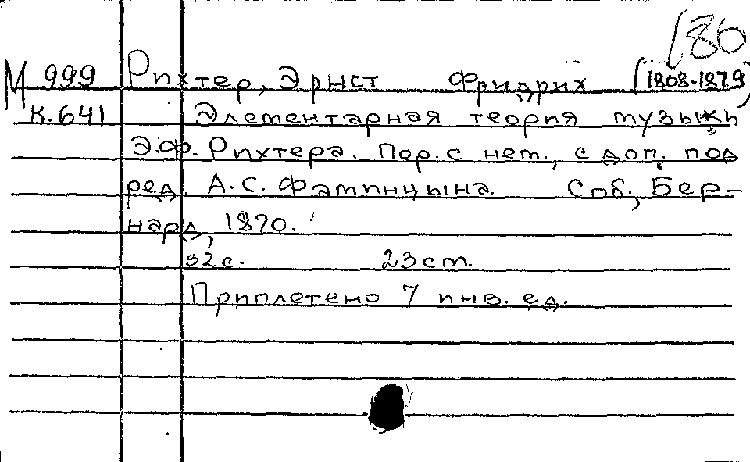 180
М 999 Рихтер, Эрнст Фридрих (1808-1879)
К.641 Элементарная теория музыки
Э.Ф. Рихтера. Пер. с нем., с доп. под
ред. А.С. Фаминцына. Спб., Бер-
нард, 1870.
32с. 23см.
Приплетено 7 инв. ед.